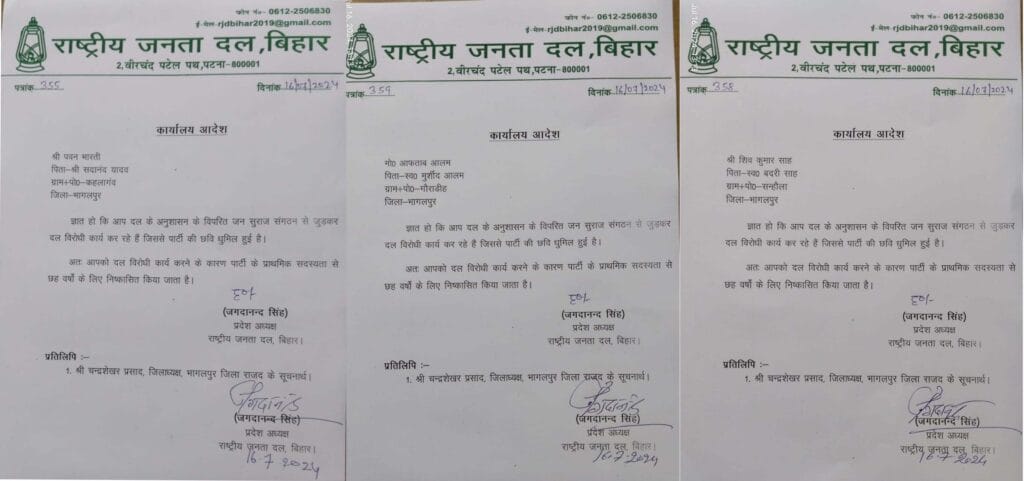 फोन नं०- 0612-2506830
ई-मेल-rjdbihar2019@gmail.com
राष्ट्रीय जनता दल,बिहार
2,वीरचंद पटेल पथ,पटना-800001
पत्रांक 355 दिनांक 16/07/2024
कार्यालय आदेश
श्री पवन भारती
पिता-श्री सदानंद यादव
ग्राम+पो०-कहलागंव
जिला-भागलपुर
ज्ञात हो कि आप दल के अनुशासन के विपरित जन सुराज संगठन से जुड़कर
दल विरोधी कार्य कर रहे हैं जिससे पार्टी की छवि धुमिल हुई है।
अतः आपको दल विरोधी कार्य करने के कारण पार्टी के प्राथमिक सदस्यता से
छह वर्षो के लिए निष्कासित किया जाता है।
ह०/-
(जगदानन्द सिंह)
प्रदेश अध्यक्ष
राष्ट्रीय जनता दल, बिहार।
प्रतिलिपि :-
1. श्री चन्द्रशेखर प्रसाद, जिलाध्यक्ष, भागलपुर जिला राजद के सूचनार्थ।
जगदानंद
(जगदानन्द सिंह)
प्रदेश अध्यक्ष
राष्ट्रीय जनता दल, बिहार।
16.7.2024
फोन नं०- 0612-2506830
ई-मेल-rjdbihar2019@gmail.com
राष्ट्रीय जनता दल,बिहार
2,वीरचंद पटेल पथ,पटना-800001
पत्रांक 359 दिनांक 16/07/2024
कार्यालय आदेश
मो० आफताब आलम
पिता-स्व० मुर्शीद आलम
ग्राम+पो०-गौराडीह
जिला-भागलपुर
ज्ञात हो कि आप दल के अनुशासन के विपरित जन सुराज संगठन से जुड़कर
दल विरोधी कार्य कर रहे हैं जिससे पार्टी की छवि धुमिल हुई है।
अतः आपको दल विरोधी कार्य करने के कारण पार्टी के प्राथमिक सदस्यता से
छह वर्षो के लिए निष्कासित किया जाता है।
ह०/-
(जगदानन्द सिंह)
प्रदेश अध्यक्ष
राष्ट्रीय जनता दल, बिहार।
प्रतिलिपि :-
1. श्री चन्द्रशेखर प्रसाद, जिलाध्यक्ष, भागलपुर जिला राजद के सूचनार्थ।
जगदानंद
(जगदानन्द सिंह)
प्रदेश अध्यक्ष
राष्ट्रीय जनता दल, बिहार।
16.7.2024
फोन नं०- 0612-2506830
ई-मेल-rjdbihar2019@gmail.com
राष्ट्रीय जनता दल,बिहार
2,वीरचंद पटेल पथ,पटना-800001
पत्रांक 358 दिनांक 16/07/2024
कार्यालय आदेश
श्री शिव कुमार साह
पिता-स्व० बदरी साह
ग्राम+पो०-सन्हौला
जिला-भागलपुर
ज्ञात हो कि आप दल के अनुशासन के विपरित जन सुराज संगठन से जुड़कर
दल विरोधी कार्य कर रहे हैं जिससे पार्टी की छवि धुमिल हुई है।
अतः आपको दल विरोधी कार्य करने के कारण पार्टी के प्राथमिक सदस्यता से
छह वर्षो के लिए निष्कासित किया जाता है।
ह०/-
(जगदानन्द सिंह)
प्रदेश अध्यक्ष
राष्ट्रीय जनता दल, बिहार।
प्रतिलिपि :-
1. श्री चन्द्रशेखर प्रसाद, जिलाध्यक्ष, भागलपुर जिला राजद के सूचनार्थ।
(जगदानन्द सिंह)
प्रदेश अध्यक्ष
राष्ट्रीय जनता दल, बिहार।
16.7.2024